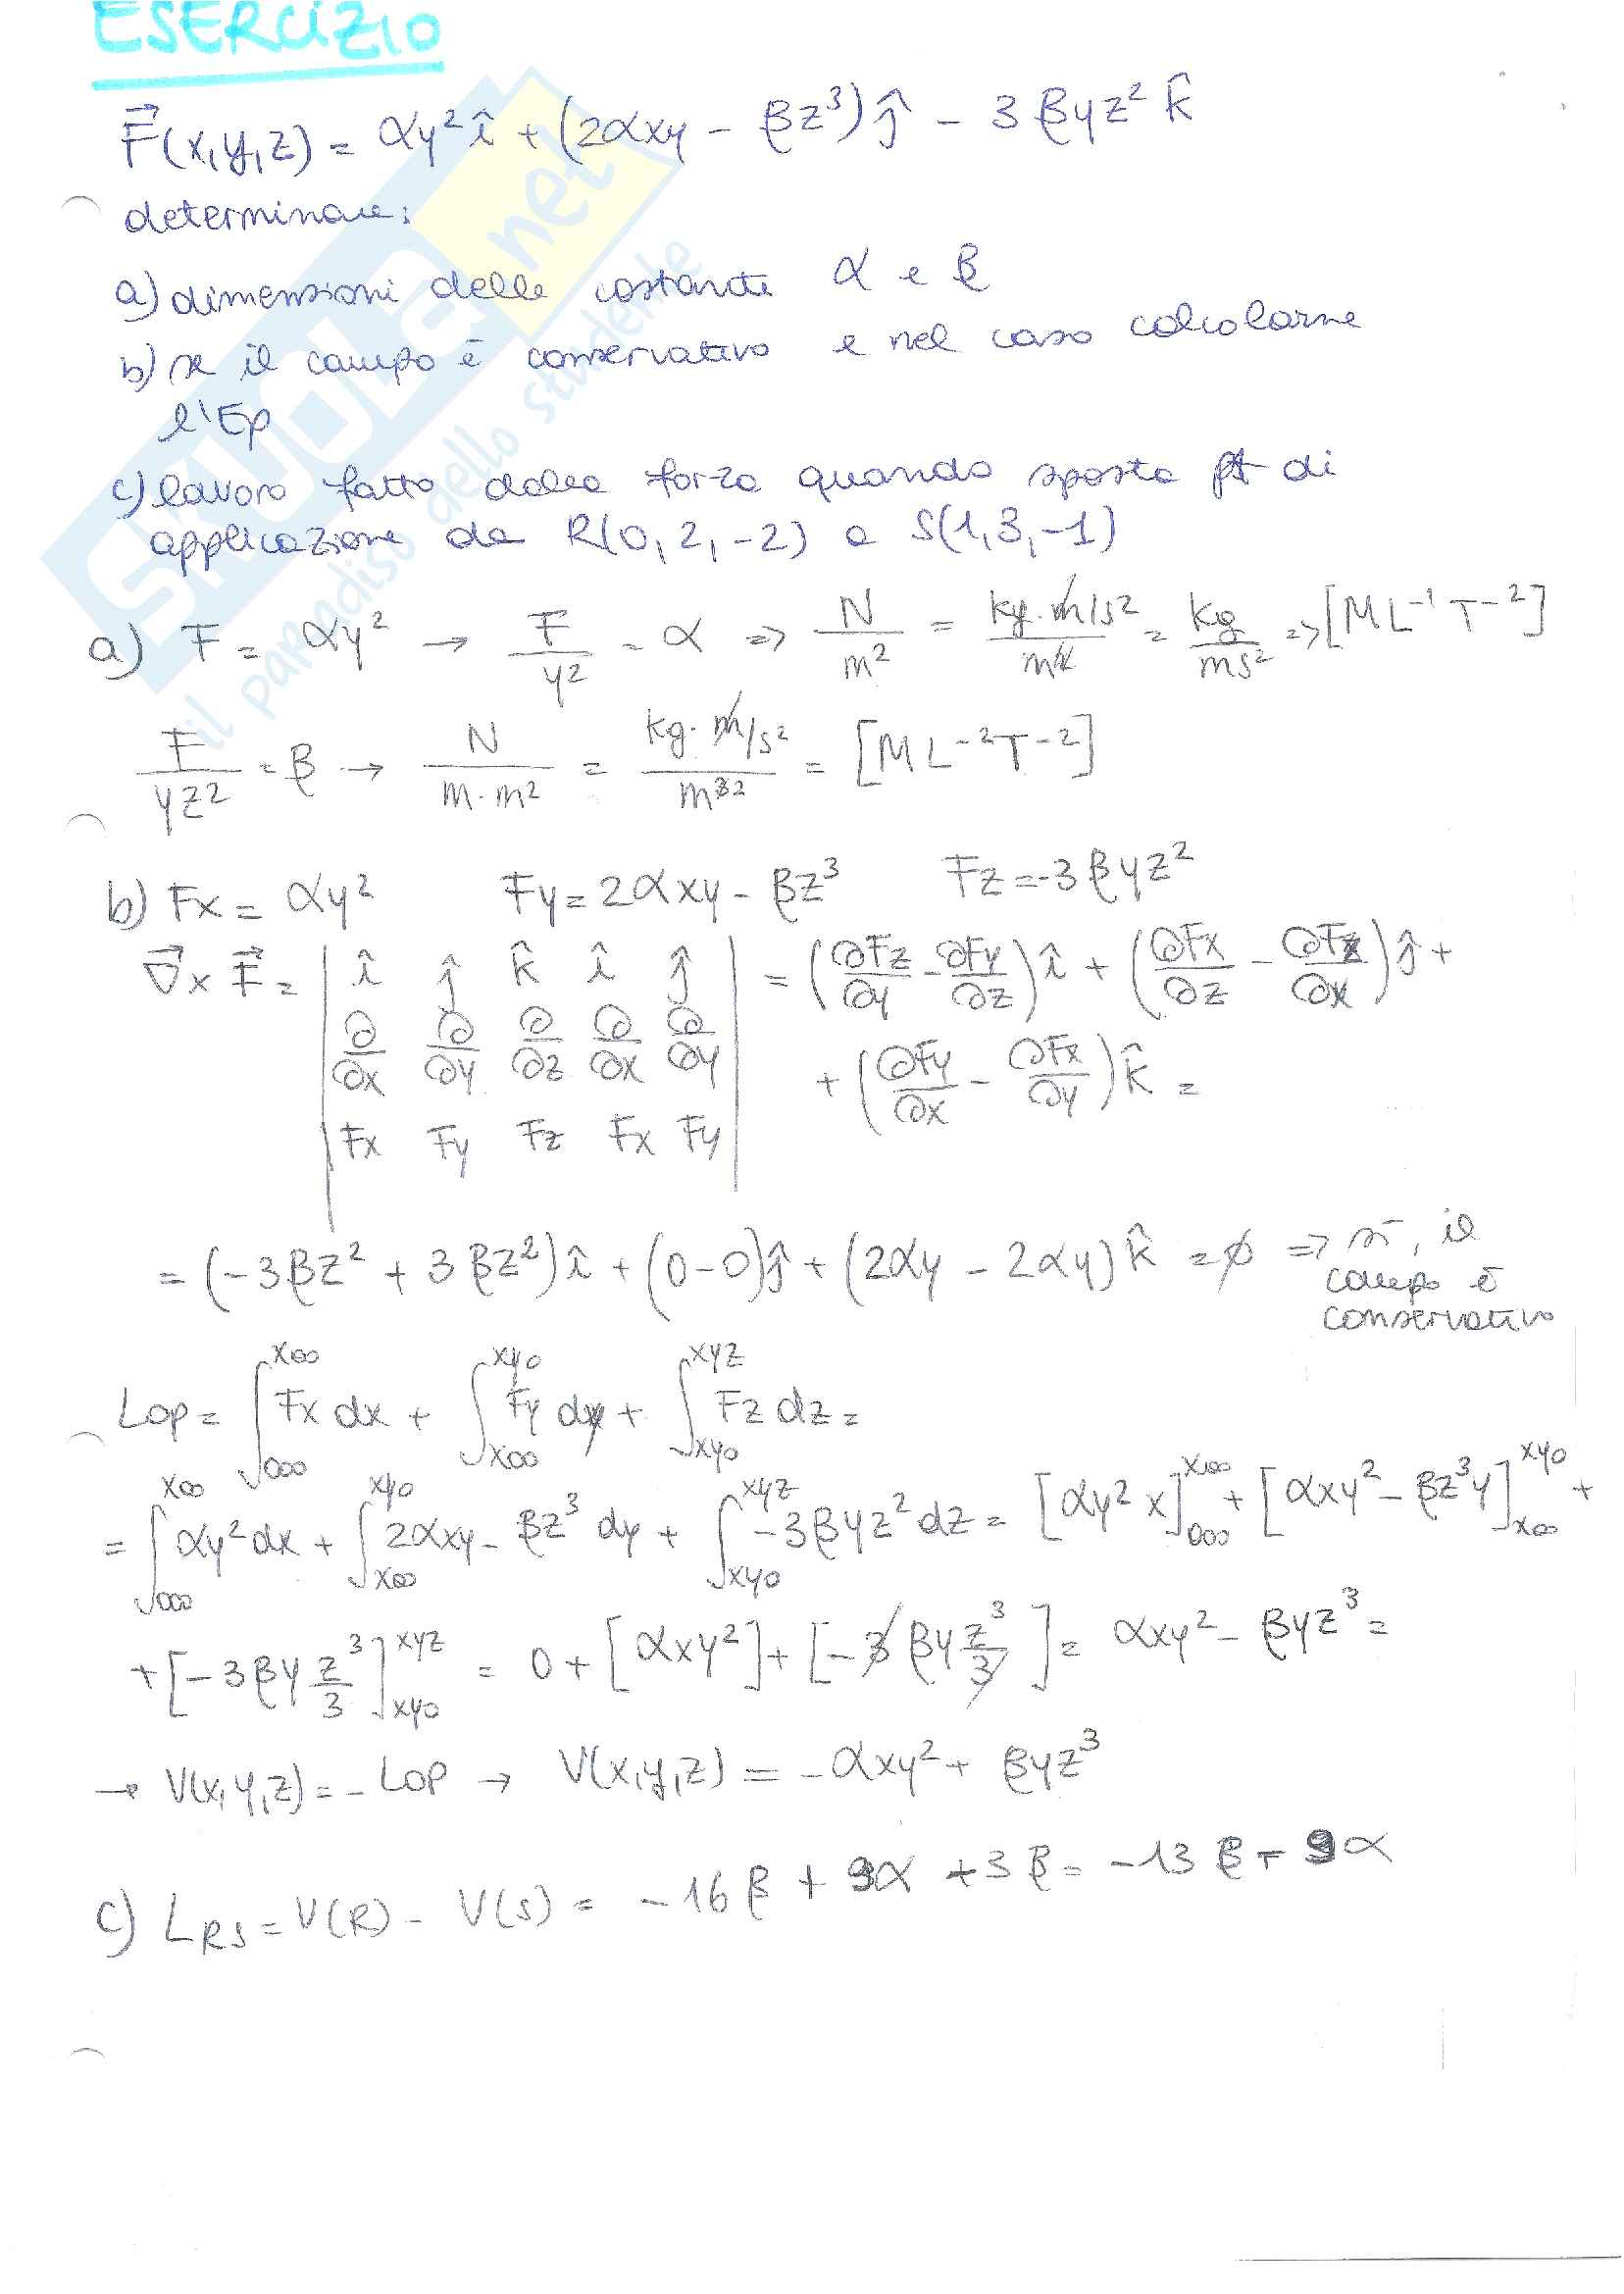 ESERCIZIO
F⃗(x,y,z) = αy² î + (2αxy - βz³) ĵ - 3βyz² k̂
determinare:
a) dimensioni delle costante α e β
b) se il campo è conservativo e nel caso calcolarne
l'Ep
c) lavoro fatto dalla forza quando sposta pt di
applicazione da R(0, 2, -2) a S(1, 3, -1)
a) F = αy² → F/y² = α => N/m² = kg·m/s²/m² = kg/ms² => [M L⁻¹ T⁻²]
F/yz² = β → N/m·m² = kg·m/s²/m³² = [M L⁻² T⁻²]
b) Fx = αy² Fy = 2αxy - βz³ Fz = -3βyz²
∇⃗ x F⃗ = | î ĵ k̂ î ĵ | = (∂Fz/∂y - ∂Fy/∂z) î + (∂Fx/∂z - ∂Fz/∂x) ĵ +
∂/∂x ∂/∂y ∂/∂z ∂/∂x ∂/∂y + (∂Fy/∂x - ∂Fx/∂y) k̂ =
Fx Fy Fz Fx Fy
= (-3βz² + 3βz²) î + (0-0) ĵ + (2αy - 2αy) k̂ = ∅ => sì, il
campo è
conservativo
Lop = ∫₀₀₀ˣ⁰⁰ Fx dx + ∫ₓ₀₀ˣʸ⁰ Fy dy + ∫xy0^xyz Fz dz =
= ∫000^x00 αy² dx + ∫x00^xy0 2αxy - βz³ dy + ∫xy0^xyz -3βyz² dz = [αy² x]000^x00 + [αxy² - βz³y]x00^xy0 +
+ [-3βy z³/3]xy0^xyz = 0 + [αxy²] + [-3βy z³/3] = αxy² - βyz³ =
→ V(x,y,z) = - Lop → V(x,y,z) = -αxy² + βyz³
c) LRS = V(R) - V(S) = -16β + 9α + 3β = -13β + 9α
SKUOLA.net
il paradiso dello studente